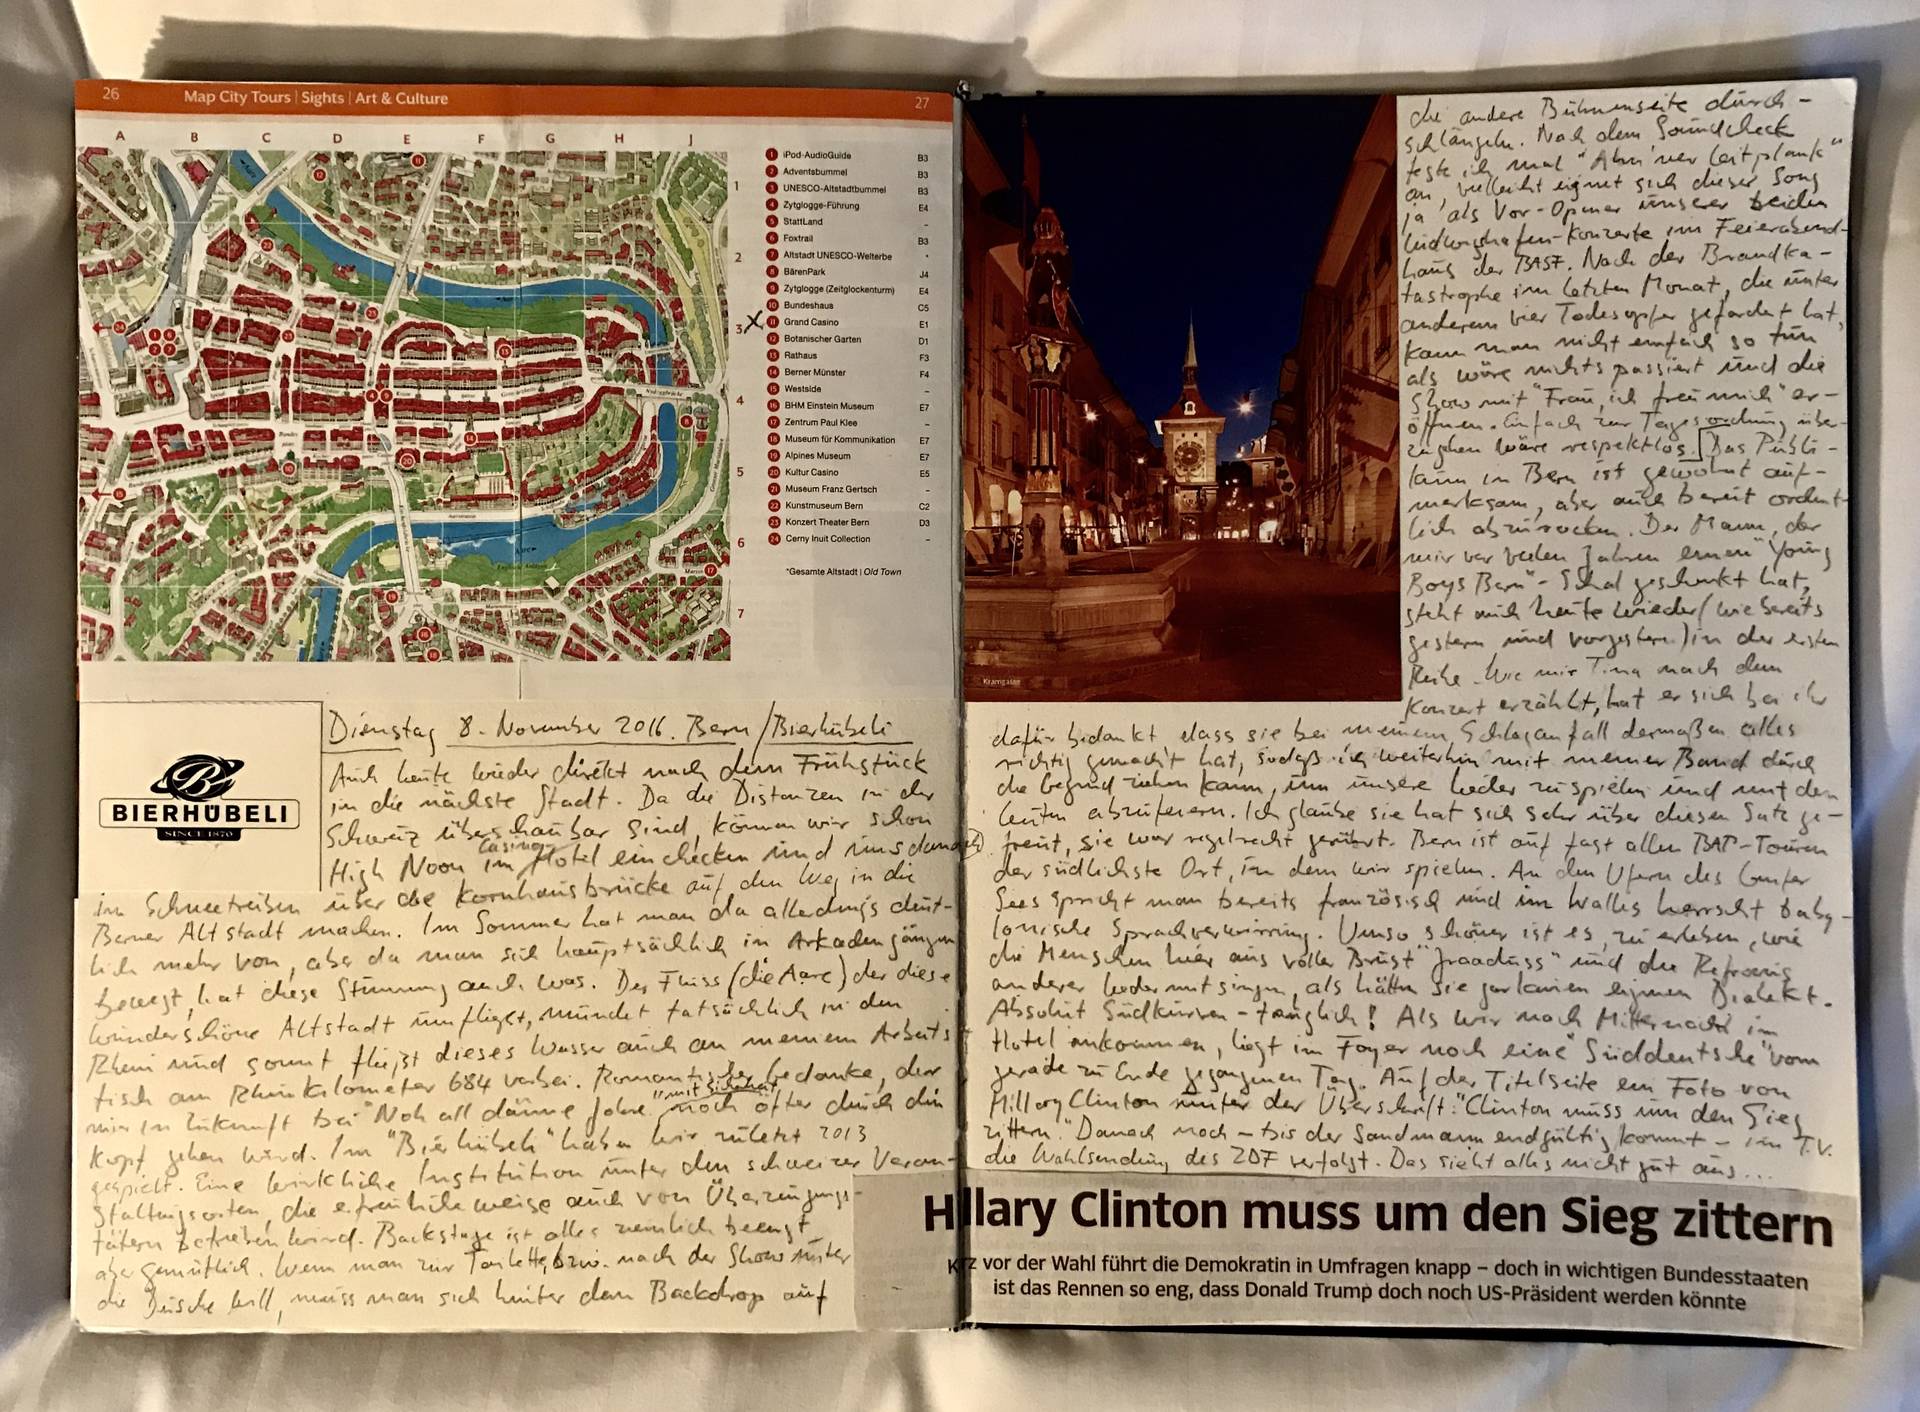 26
Map City Tours | Sights | Art & Culture
27
A B C D E F G H J
1
2
3
4
5
6
7
1 iPod-AudioGuide B3
2 Adventsbummel B3
3 UNESCO-Altstadtbummel B3
4 Zytglogge-Führung E4
5 StattLand –
6 Foxtrail B3
7 Altstadt UNESCO-Welterbe *
8 BärenPark J4
9 Zytglogge (Zeitglockenturm) E4
10 Bundeshaus C5
X 11 Grand Casino E1
12 Botanischer Garten D1
13 Rathaus F3
14 Berner Münster F4
15 Westside –
16 BHM Einstein Museum E7
17 Zentrum Paul Klee –
18 Museum für Kommunikation E7
19 Alpines Museum E7
20 Kultur Casino E5
21 Museum Franz Gertsch –
22 Kunstmuseum Bern C2
23 Konzert Theater Bern D3
24 Cerny Inuit Collection –
*Gesamte Altstadt | Old Town
B
BIERHÜBELI
SINCE 1870
Dienstag 8. November 2016. Bern/Bierhübeli
Auch heute wieder direkt nach dem Frühstück
in die nächste Stadt. Da die Distanzen in der
Schweiz überschaubar sind, können wir schon
High Noon im Casino Hotel einchecken und uns danach
im Schneetreiben über die Kornhausbrücke auf den Weg in die
Berner Altstadt machen. Im Sommer hat man da allerdings deut-
lich mehr von, aber da man sich hauptsächlich in Arkadengängen
bewegt, hat diese Stimmung auch was. Der Fluss (die Aare) der diese
wunderschöne Altstadt umfliesst, mündet tatsächlich in den
Rhein und somit fließt dieses Wasser auch an meinem Arbeits-
tisch am Rheinkilometer 684 vorbei. Romantischer Gedanke, der
mir in Zukunft bei "Noh all dänne Johre" "mit Sicherheit" noch öfter durch den
Kopf gehen wird. Im "Bierhübeli" haben wir zuletzt 2013
gespielt. Eine wirkliche Institution unter den schweizer Veran-
staltungsorten, die erfreulicherweise auch von Überzeugungs-
tätern betrieben wird. Backstage ist alles ziemlich beengt
aber gemütlich. Wenn man zur Toilette, bzw. nach der Show unter
die Dusche will, muss man sich hinter dem Backdrop auf
Kramgasse
die andere Bühnenseite durch-
schlängeln. Nach dem Soundcheck
teste ich mal "Ahn 'ner Leitplank"
an, vielleicht eignet sich dieser Song
ja als Vor-Opener unserer beiden
Ludwigshafen-Konzerte im Feierabend-
haus der BASF. Nach der Brandka-
tastrophe im letzten Monat, die unter
anderem vier Todesopfer gefordert hat,
kann man nicht einfach so tun
als wäre nichts passiert und die
Show mit "Frau, ich freu mich" er-
öffnen. Einfach zur Tagesordnung über-
zugehen wäre respektlos. Das Publi-
kum in Bern ist gewohnt auf-
merksam, aber auch bereit ordent-
lich abzurocken. Der Mann, der
mir vor vielen Jahren einen "Young
Boys Bern"-Schal geschenkt hat,
steht auch heute wieder (wie bereits
gestern und vorgestern) in der ersten
Reihe. Wie mir Tina nach dem
Konzert erzählt, hat er sich bei ihr
dafür bedankt dass sie bei meinem Schlaganfall dermaßen alles
richtig gemacht hat, sodaß ich weiterhin mit meiner Band durch
die Gegend ziehen kann, um unsere Lieder zu spielen und mit den
Leuten abzufeiern. Ich glaube sie hat sich sehr über diesen Satz ge-
freut, sie war regelrecht gerührt. Bern ist auf fast allen BAP-Touren
der südlichste Ort, in dem wir spielen. An den Ufern des Genfer
Sees spricht man bereits französisch und im Wallis herrscht baby-
lonische Sprachverwirrung. Umso schöner ist es, zu erleben, wie
die Menschen hier aus voller Brust "Jraaduss" und die Refrains
anderer Lieder mitsingen, als hätten sie gar keinen eigenen Dialekt.
Absolut Südkurven-tauglich! Als wir nach Mitternacht im
Hotel ankommen, liegt im Foyer noch eine "Süddeutsche" vom
gerade zu Ende gegangenen Tag. Auf der Titelseite ein Foto von
Hillary Clinton unter der Überschrift: "Clinton muss um den Sieg
zittern." Danach noch – bis der Sandmann endgültig kommt – im T.V.
die Wahlsendung des ZDF verfolgt. Das sieht alles nicht gut aus...
Hillary Clinton muss um den Sieg zittern
Kurz vor der Wahl führt die Demokratin in Umfragen knapp – doch in wichtigen Bundesstaaten
ist das Rennen so eng, dass Donald Trump doch noch US-Präsident werden könnte